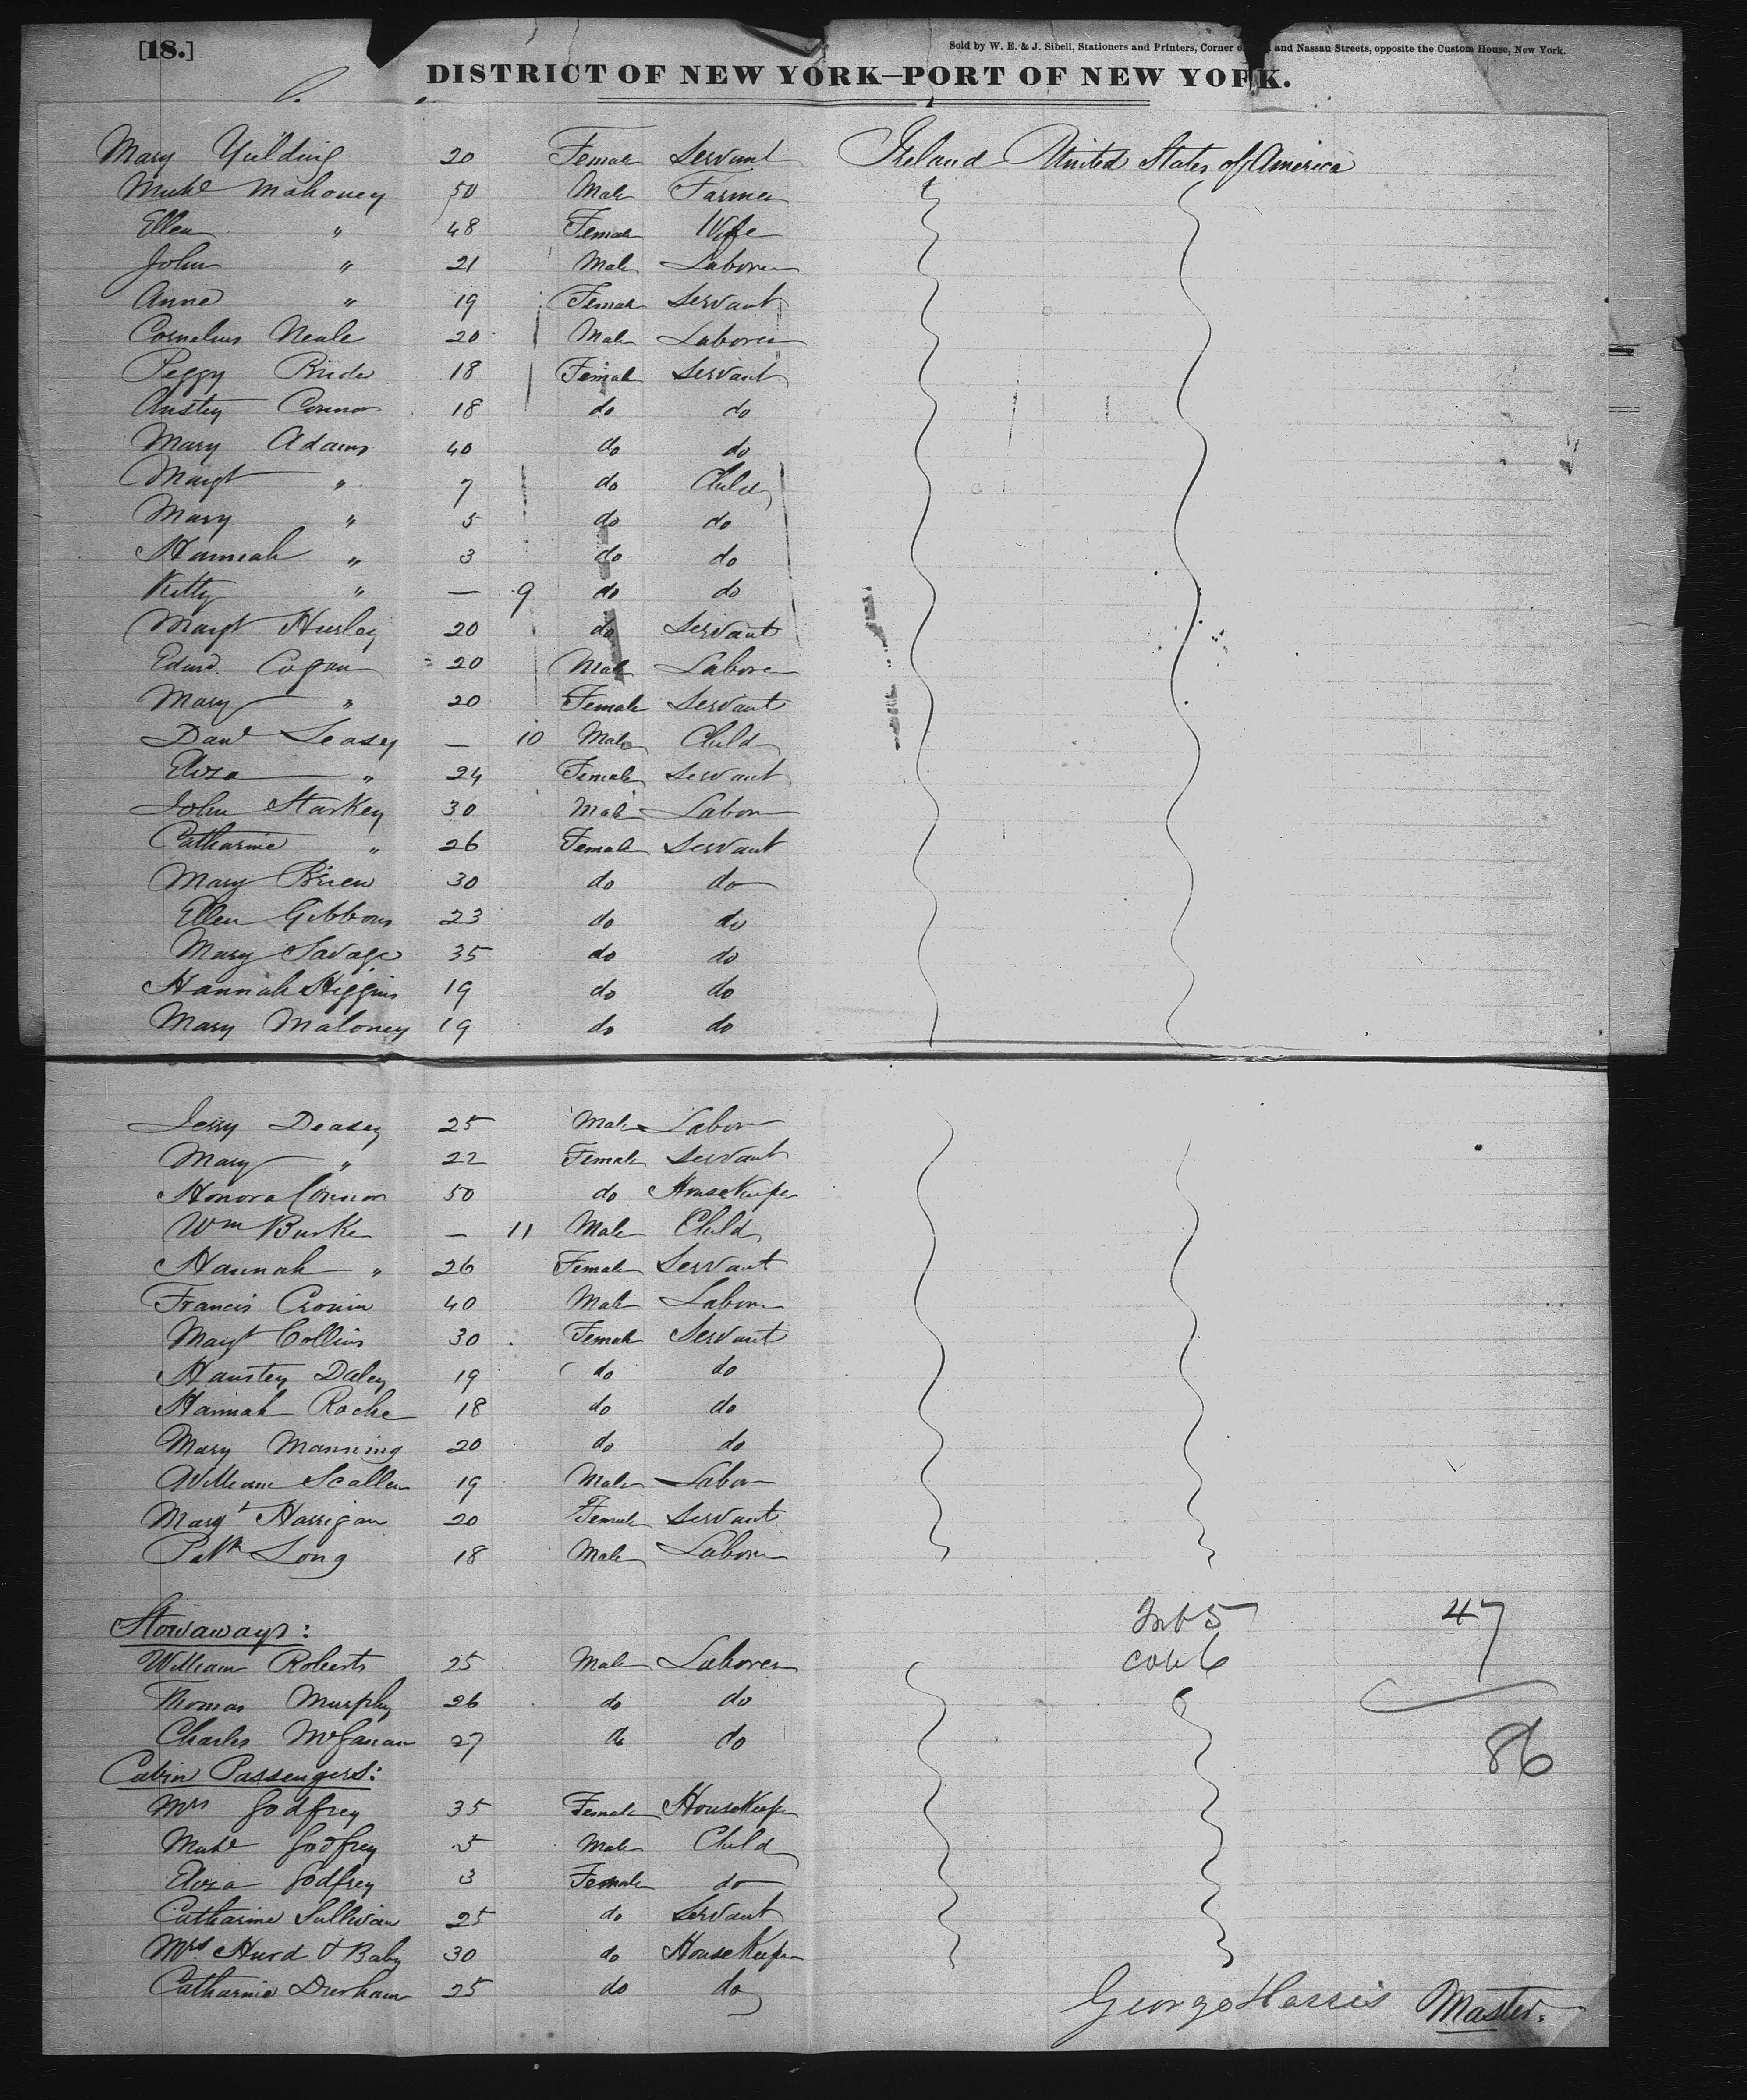 [18.]
Sold by W. E. & J. Sibell, Stationers and Printers, Corner of and Nassau Streets, opposite the Custom House, New York.
DISTRICT OF NEW YORK—PORT OF NEW YORK.
Mary Yielding 20 Female Servant Ireland United States of America
Michl Mahoney 50 Male Farmer
Ellen " 48 Female Wife
John " 21 Male Laborer
Anne " 19 Female Servant
Cornelius Neale 20 Male Laborer
Peggy Bride 18 Female Servant
Anstey Connor 18 do do
Mary Adams 40 do do
Margt " 7 do Child
Mary " 5 do do
Hannah " 3 do do
Kitty " — 9 do do
Margt Hurley 20 do Servant
Edwd. Cogan 20 Male Laborer
Mary " 20 Female Servant
Danl Leasey — 10 Male Child
Eliza " 24 Female Servant
John Starkey 30 Male Labor
Catharine " 26 Female Servant
Mary Brien 30 do do
Ellen Gibbons 23 do do
Mary Savage 35 do do
Hannah Higgins 19 do do
Mary Maloney 19 do do
Jerry Deasey 25 Male Labor
Mary " 22 Female Servant
Honora Connor 50 do HouseKeeper
Wm Burke — 11 Male Child
Hannah " 26 Female Servant
Francis Cronin 40 Male Labor
Margt Collins 30 Female Servant
Hanstey Daley 19 do do
Hannah Roche 18 do do
Mary Manning 20 do do
William Scallen 19 Male Labor
Margt Harrigan 20 Female Servant
Patk Long 18 Male Laborer
Stowaways:
Inf 5 47
William Roberts 25 Male Laborer
6
Thomas Murphy 26 do do
Charles 27 do do
86
Cabin Passengers:
Mrs Godfrey 35 Female HouseKeeper
Michl Godfrey 5 Male Child
Eliza Godfrey 3 Female do
Catharine Sullivan 25 do Servant
Mrs Hurd & Baby 30 do HouseKeeper
Catharine Durham 25 do do
George Harris Master.